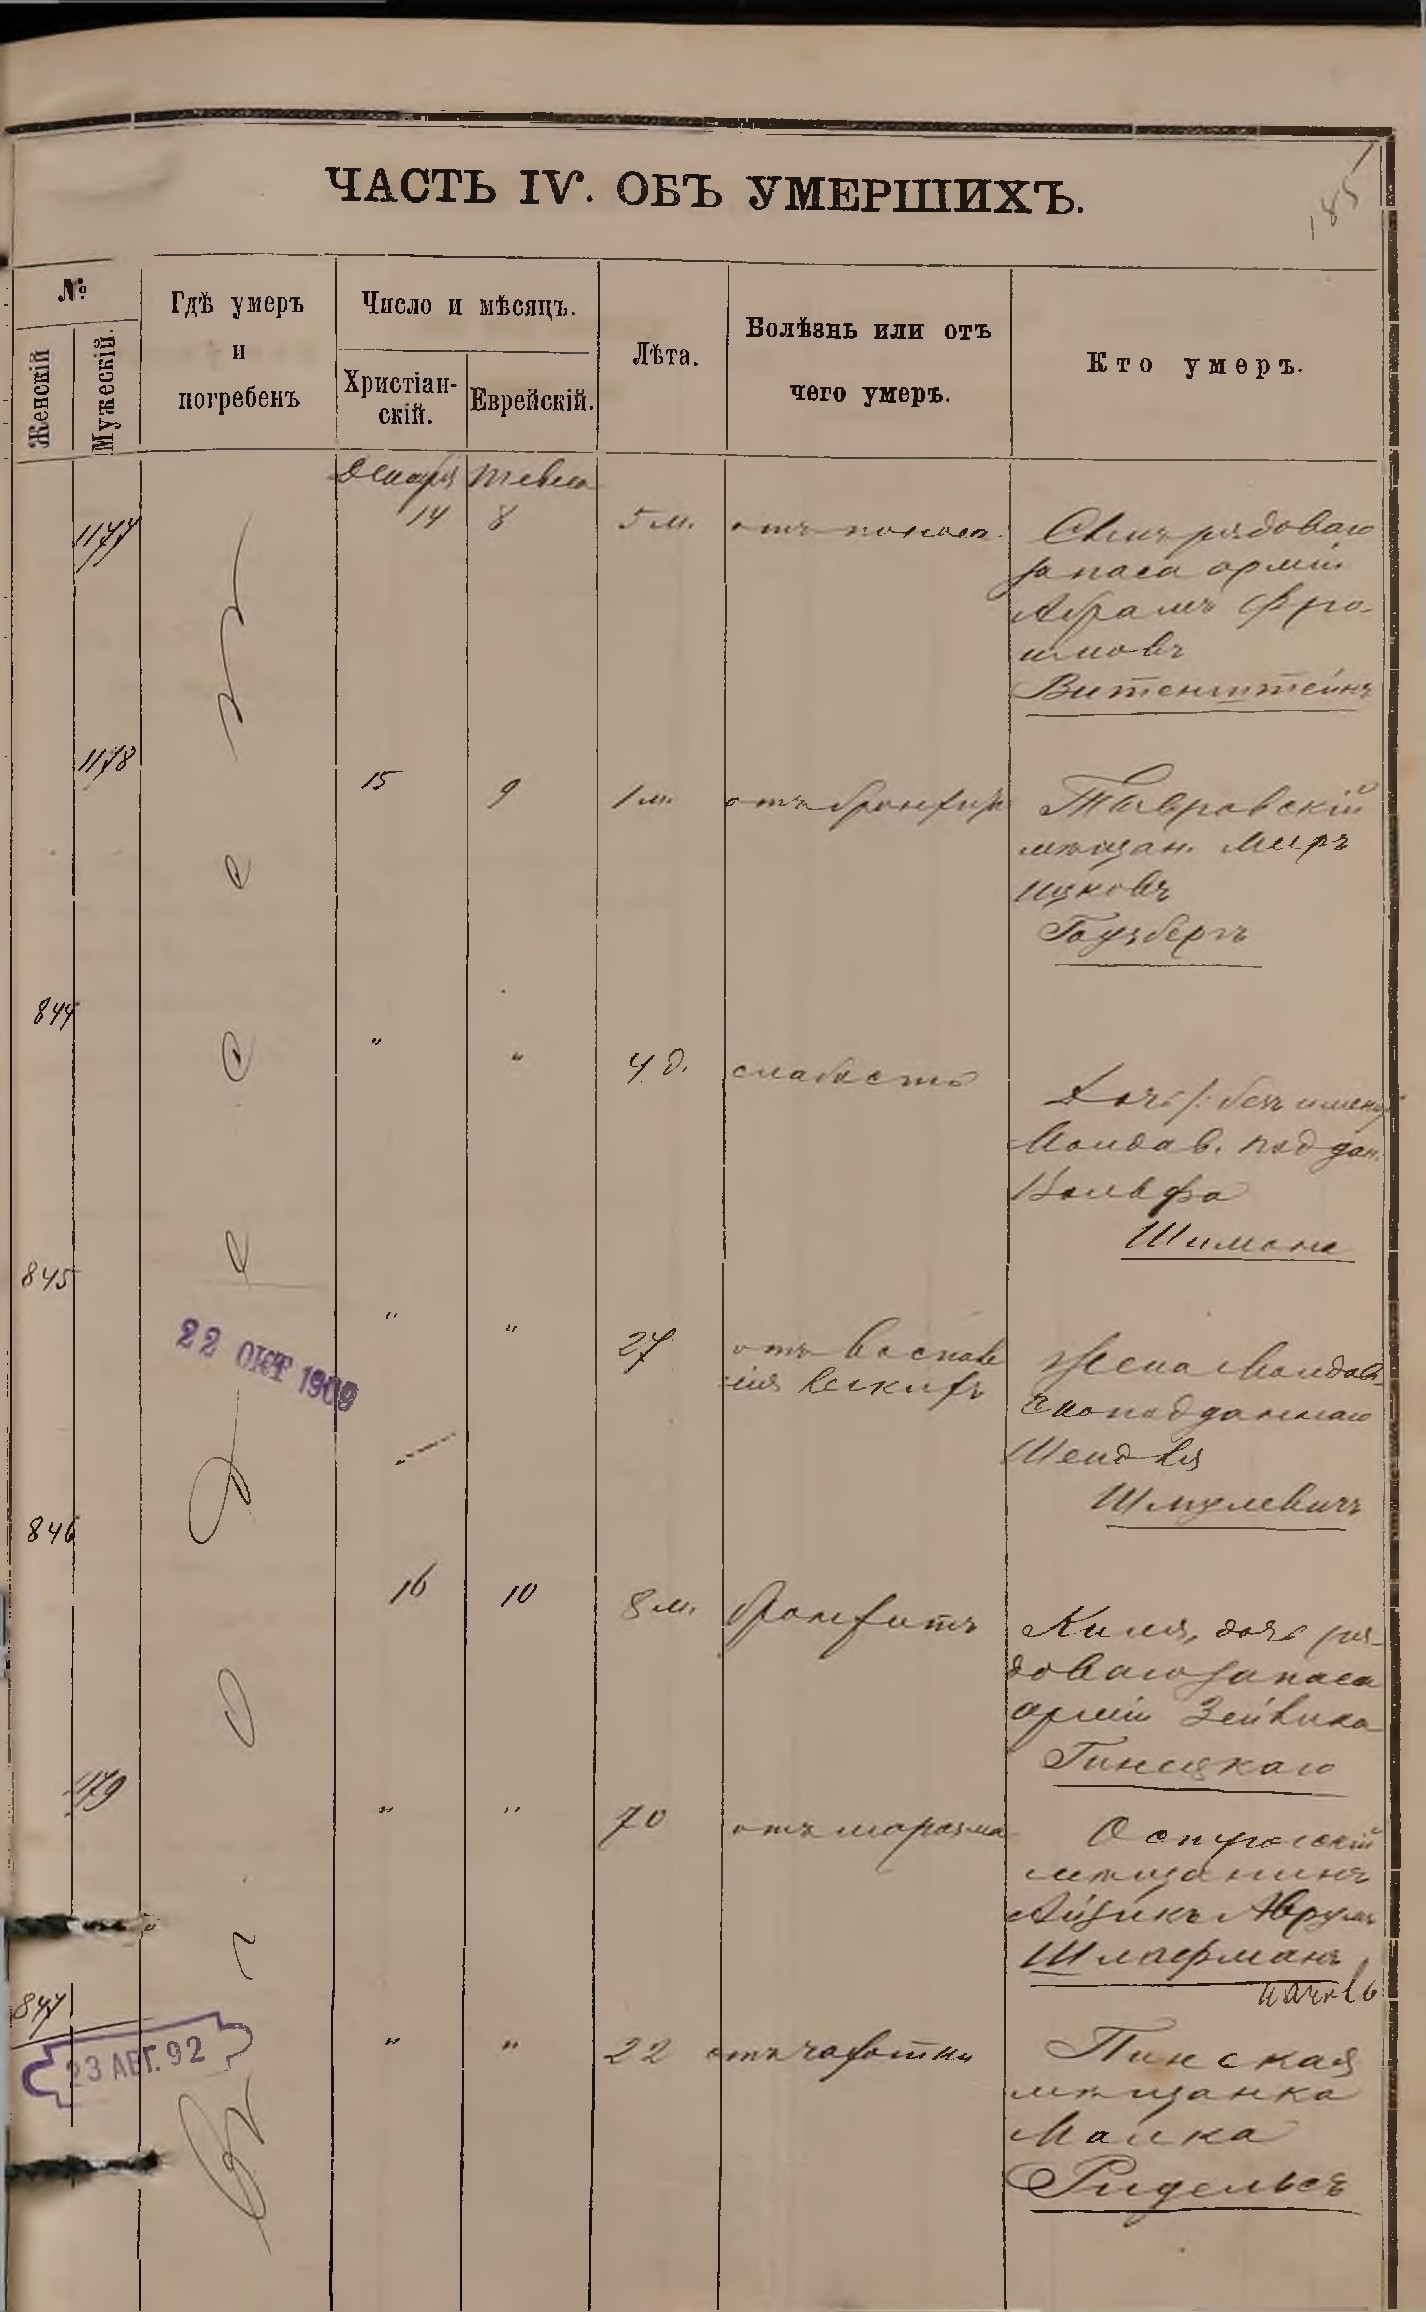 185
ЧАСТЬ IV. ОБЪ УМЕРШИХЪ.
№
Женскій
Мужескій.
Гдѣ умеръ
и
погребенъ
Число и мѣсяцъ.
Христіан-
скій.
Еврейскій.
Лѣта.
Болѣзнь или отъ
чего умеръ.
Кто умеръ.
Декабря Тевеса
1177
14 8 5 м. отъ поноса
Сынъ рядоваго
запаса армiи
Абрамъ Фро-
имовъ
Витенштейнъ
1178
15 9 1 м. отъ бронхит
Тавровскій
мѣщан. Меиръ
Ицковъ
Гаузбергъ
844
" " 4 д. слабость
Дочь /: безъ имени
Молдав. поддан.
Вольфа
Шимона
845
" " 27 отъ воспале
нія легкихъ
Жена Молдав-
скоподданнаго
Шейдля
Шмулевичъ
22 ОКТ 1909
846
16 10 8 м. бронхитъ
Киля, дочь ря-
доваго запаса
арміи Зейвика
Гинецкаго
1179
" " 70 отъ маразма
Острогскій
мѣщанинъ
Айзикъ Аврумъ
Шлафманъ
847
" " 22 отъ чахотки
Пинская
мѣщанка
Малка
Ридельсъ
23 АВГ. 92
Въ г. Одессѣ